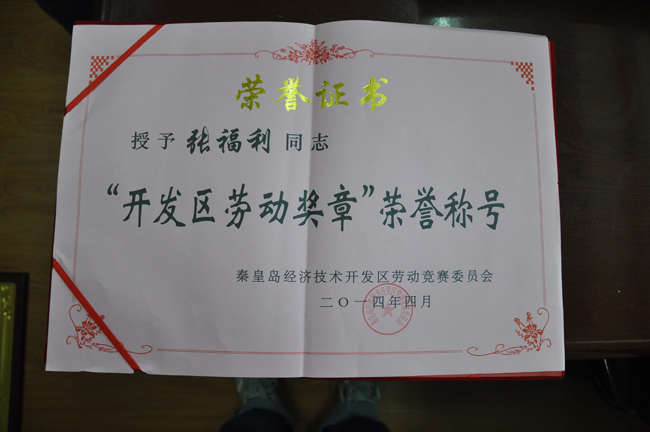 荣誉证书
授予 张福利 同志
“开发区劳动奖章”荣誉称号
秦皇岛经济技术开发区劳动竞赛委员会
二〇一四年四月